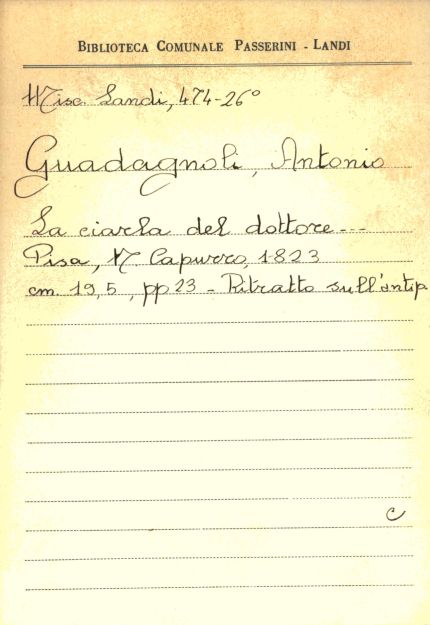 BIBLIOTECA COMUNALE PASSERINI - LANDI
Misc. Landi, 474-26°
Guadagnoli, Antonio
La ciarla del dottore ---
Pisa, N. Capurro, 1823
cm. 19,5, pp 23 - Ritratto sull'antip
c